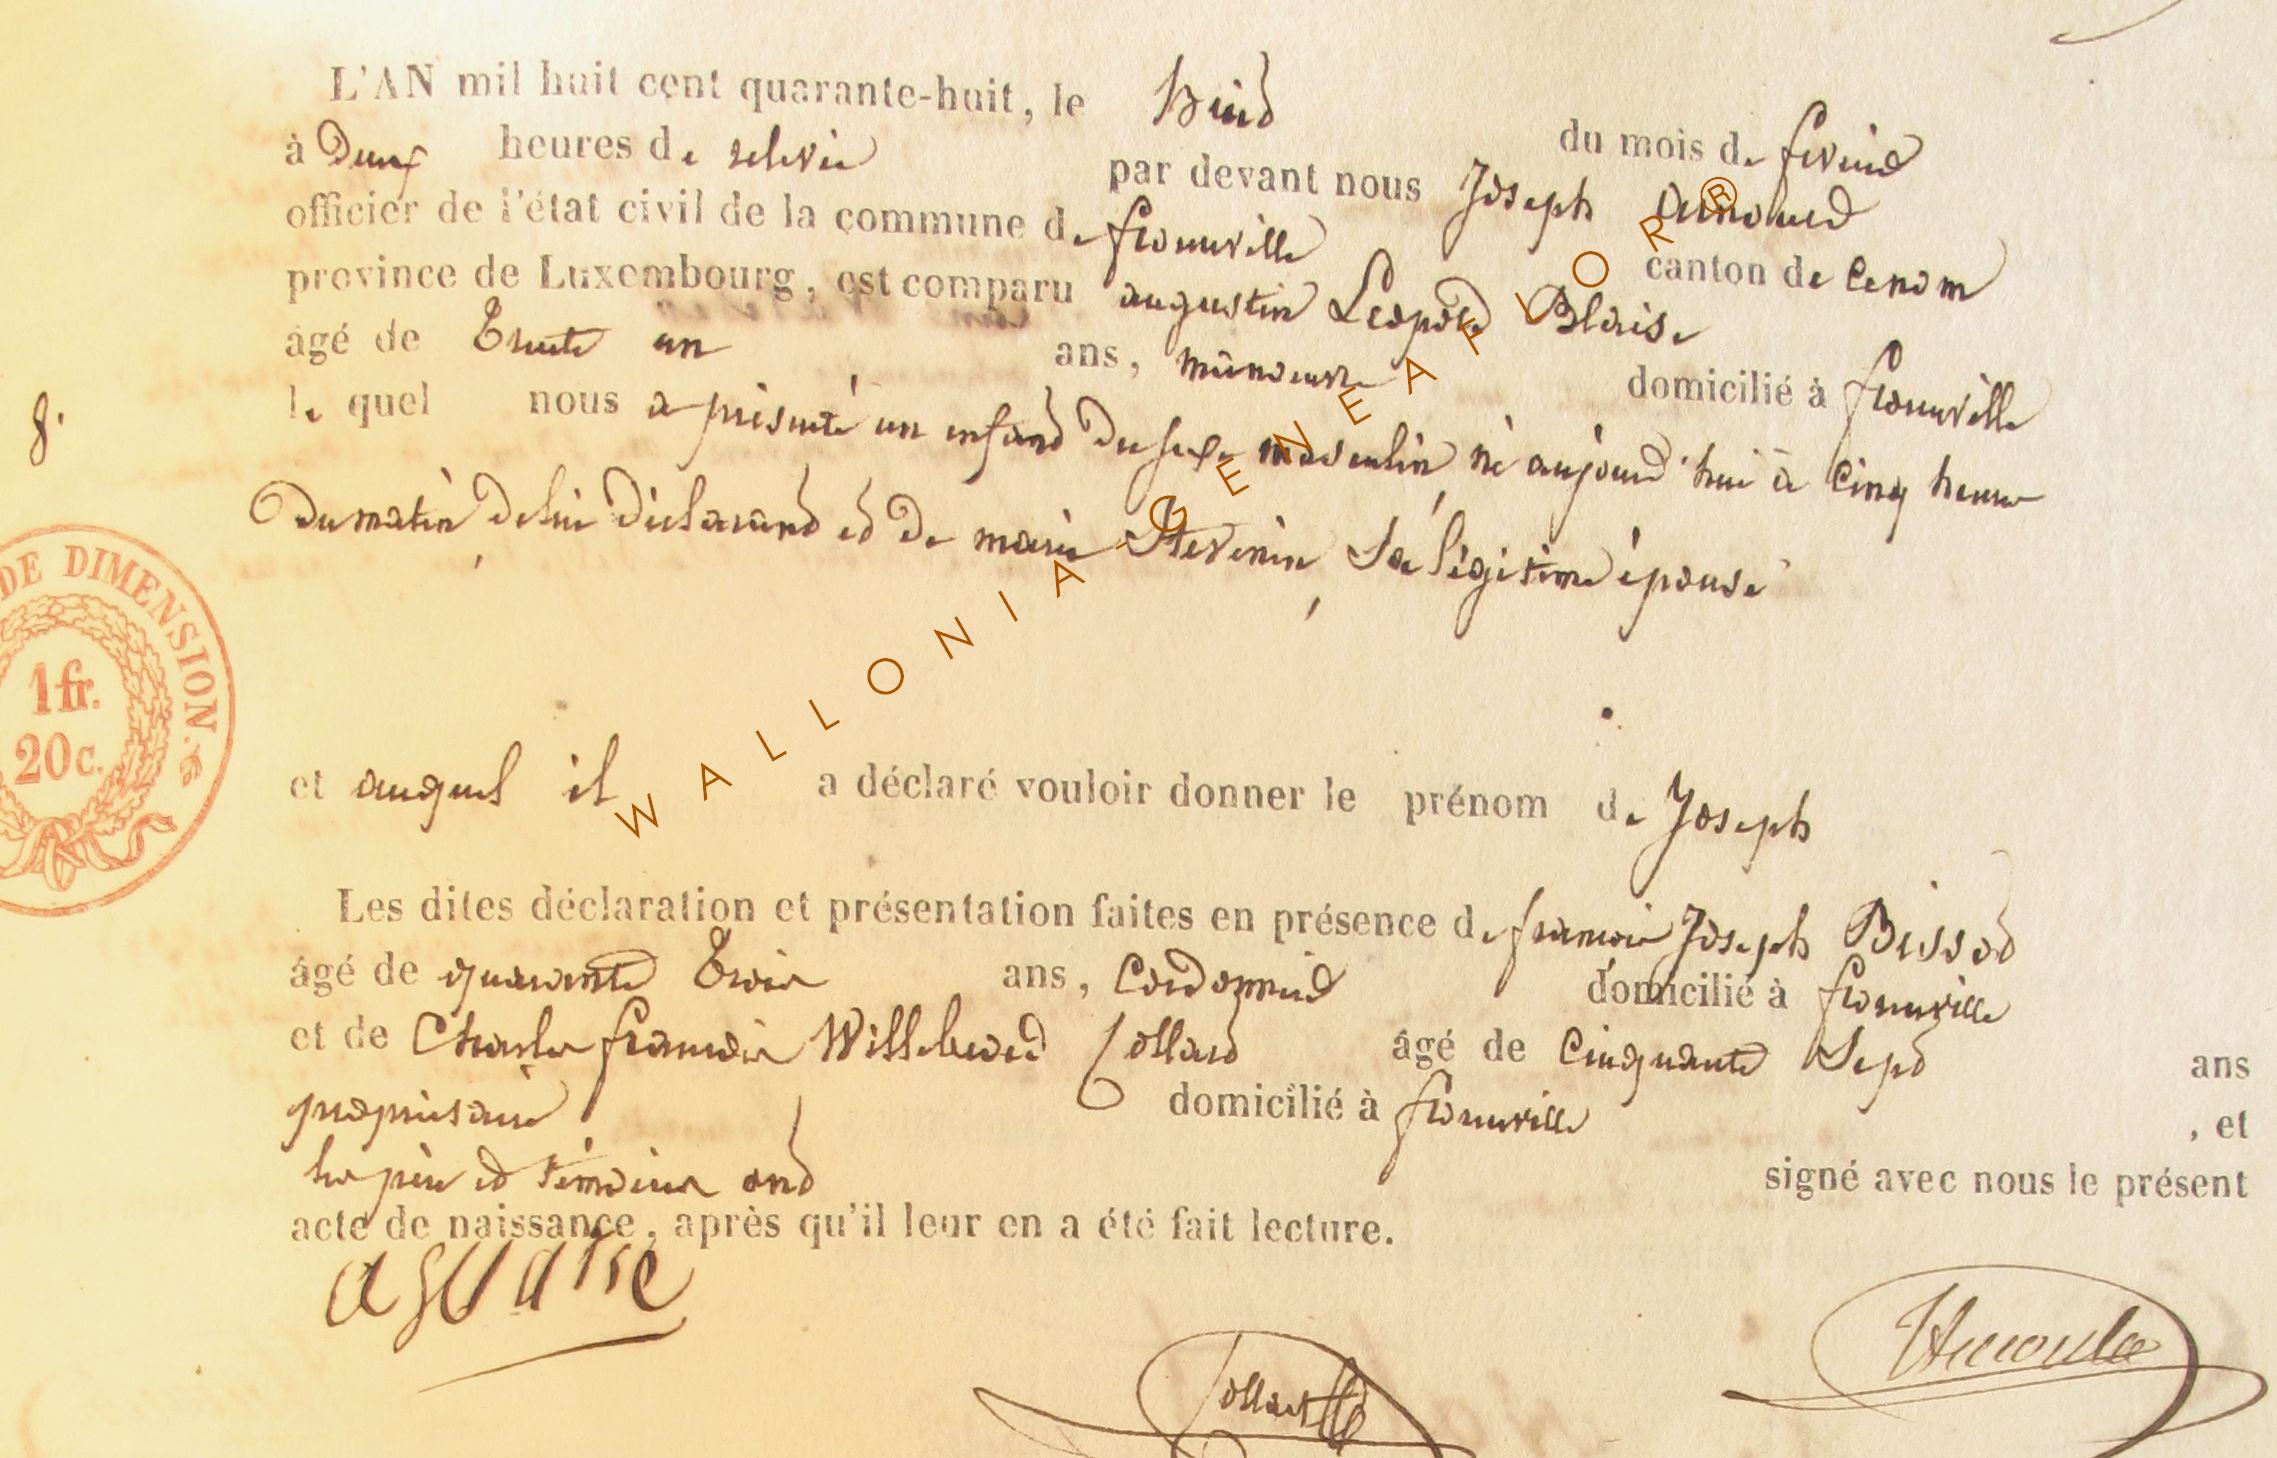 L'AN mil huit cent quarante-huit, le huit du mois de fevrier
à Deux heures de relevée par devant nous Joseph Arnould
officier de l'état civil de la commune de florenville canton de idem
province de Luxembourg, est comparu augustin Leopold Blaise
âgé de Trente un ans, manoeuvre domicilié à florenville
8.
le quel nous a présenté un enfant du sexe masculin, né aujourd'hui à Cinq heures
Du matin, de lui Déclarant et De marie Stevenin, Sa légitime épouse
DE DIMENSION.
1 fr.
20 c.
et auquel il a déclaré vouloir donner le prénom de Joseph
Les dites déclaration et présentation faites en présence de françois Joseph Bissot
âgé de quarante Trois ans, Cordonnier domicilié à florenville
et de Charles françois Willebrord Collard âgé de Cinquante Sept ans
propriétaire domicilié à florenville , et
les père et témoins ont signé avec nous le présent
acte de naissance, après qu'il leur en a été fait lecture.
WALLONIA-GENEAFLOR®